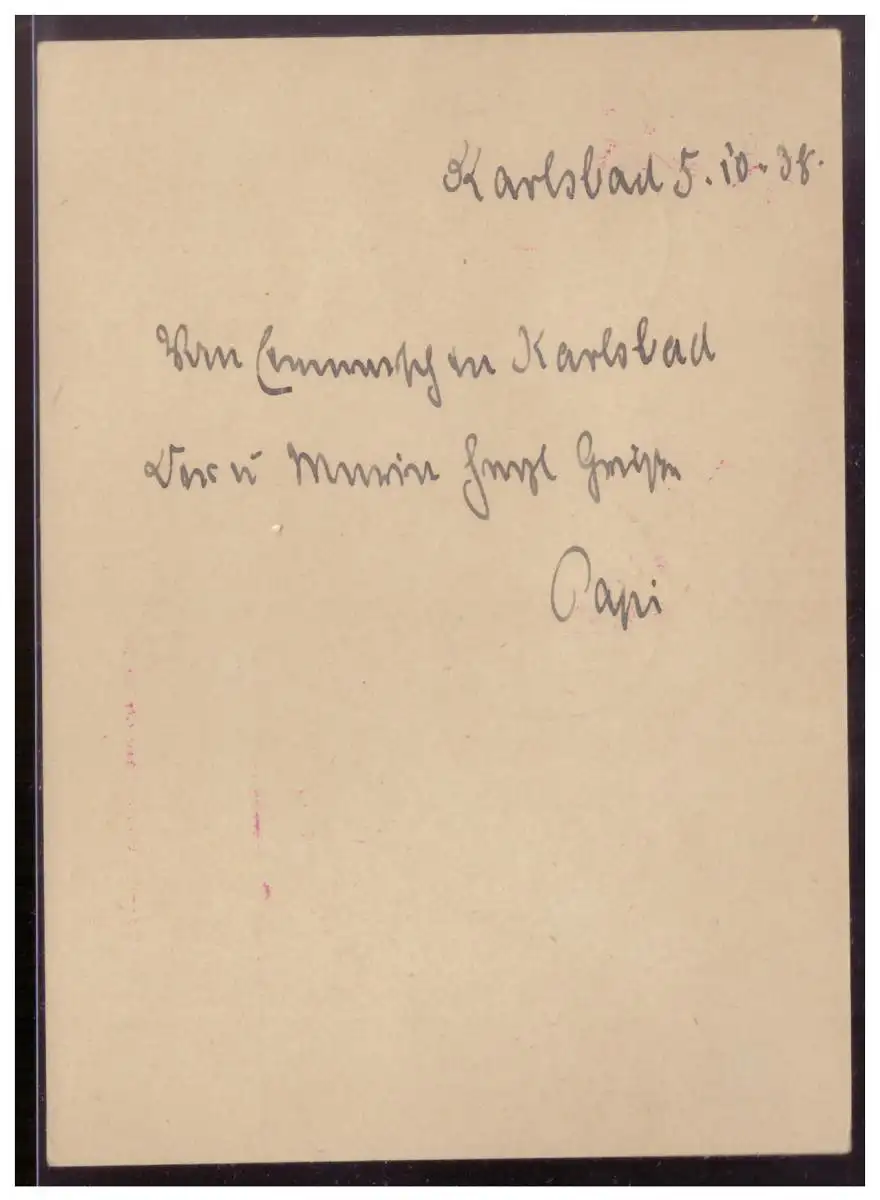 Karlsbad 5.10.38.
Vom Einmarsch in Karlsbad
Dir u Mutti herzl Grüße
Papi